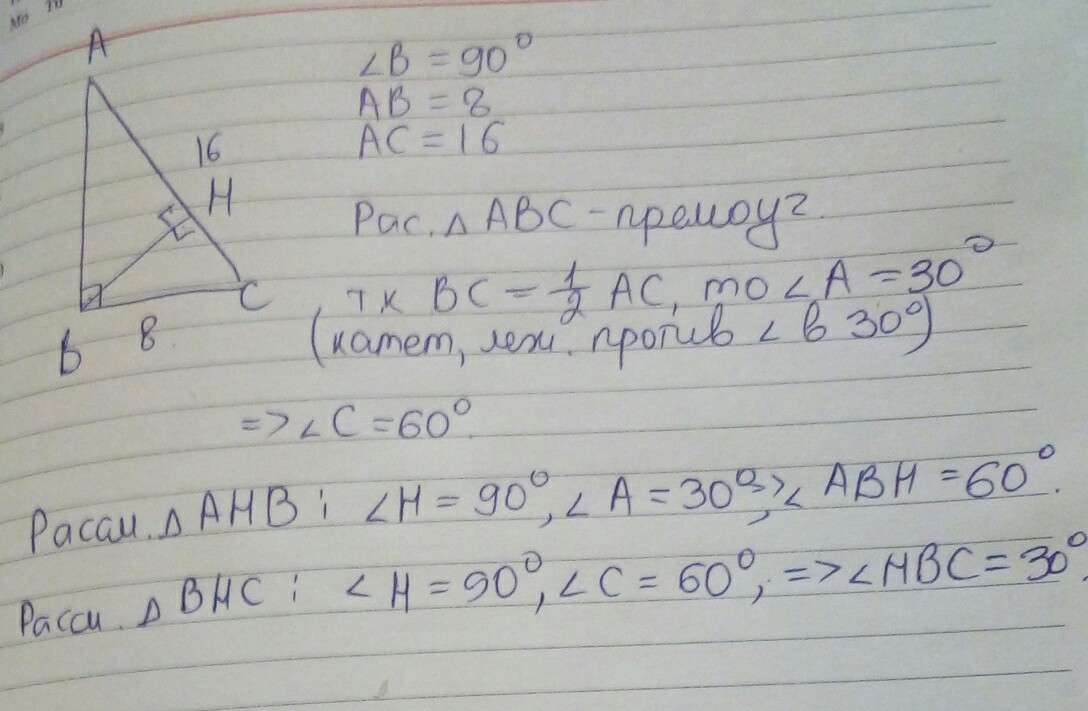 Mo Tu
A
16
H
B 8 C
∠B = 90°
AB = 8
AC = 16
Рас. △ ABC - прямоуг.
тк BC = 1/2 AC, то ∠A = 30°
(катет, леж. против ∠ в 30°)
=> ∠C = 60°
Рассм. △ AHB : ∠H = 90°, ∠A = 30° => ∠ABH = 60°.
Рассм. △ BHC : ∠H = 90°, ∠C = 60°, => ∠HBC = 30°.